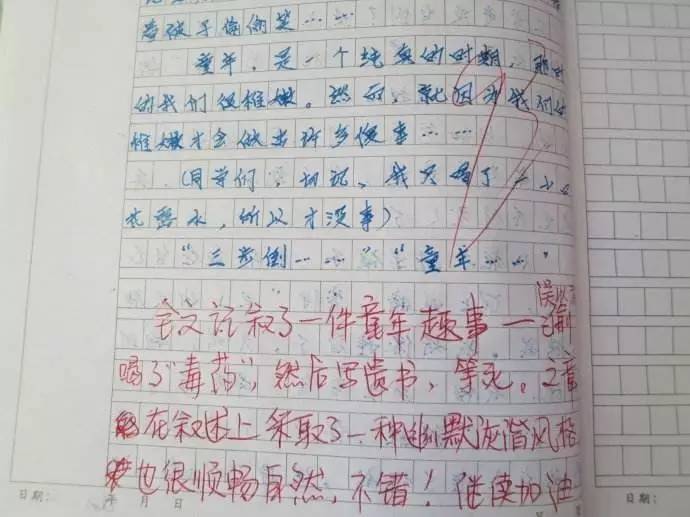 着被子偷偷笑……
童年，是一个纯真的时期，那时
的我们很稚嫩。然而，就因为我们的
稚嫩才会做出许多傻事……
（同学们，切记，我只喝了一小口
花露水，所以才没事）
“三步倒……”“童年……”
误以
全文记叙了一件童年趣事——偷
喝了“毒药”，然后写遗书、等死。文章
在叙述上采取了一种幽默诙谐风格
也很顺畅自然，不错！继续加油
日期： 年 月 日
日期：